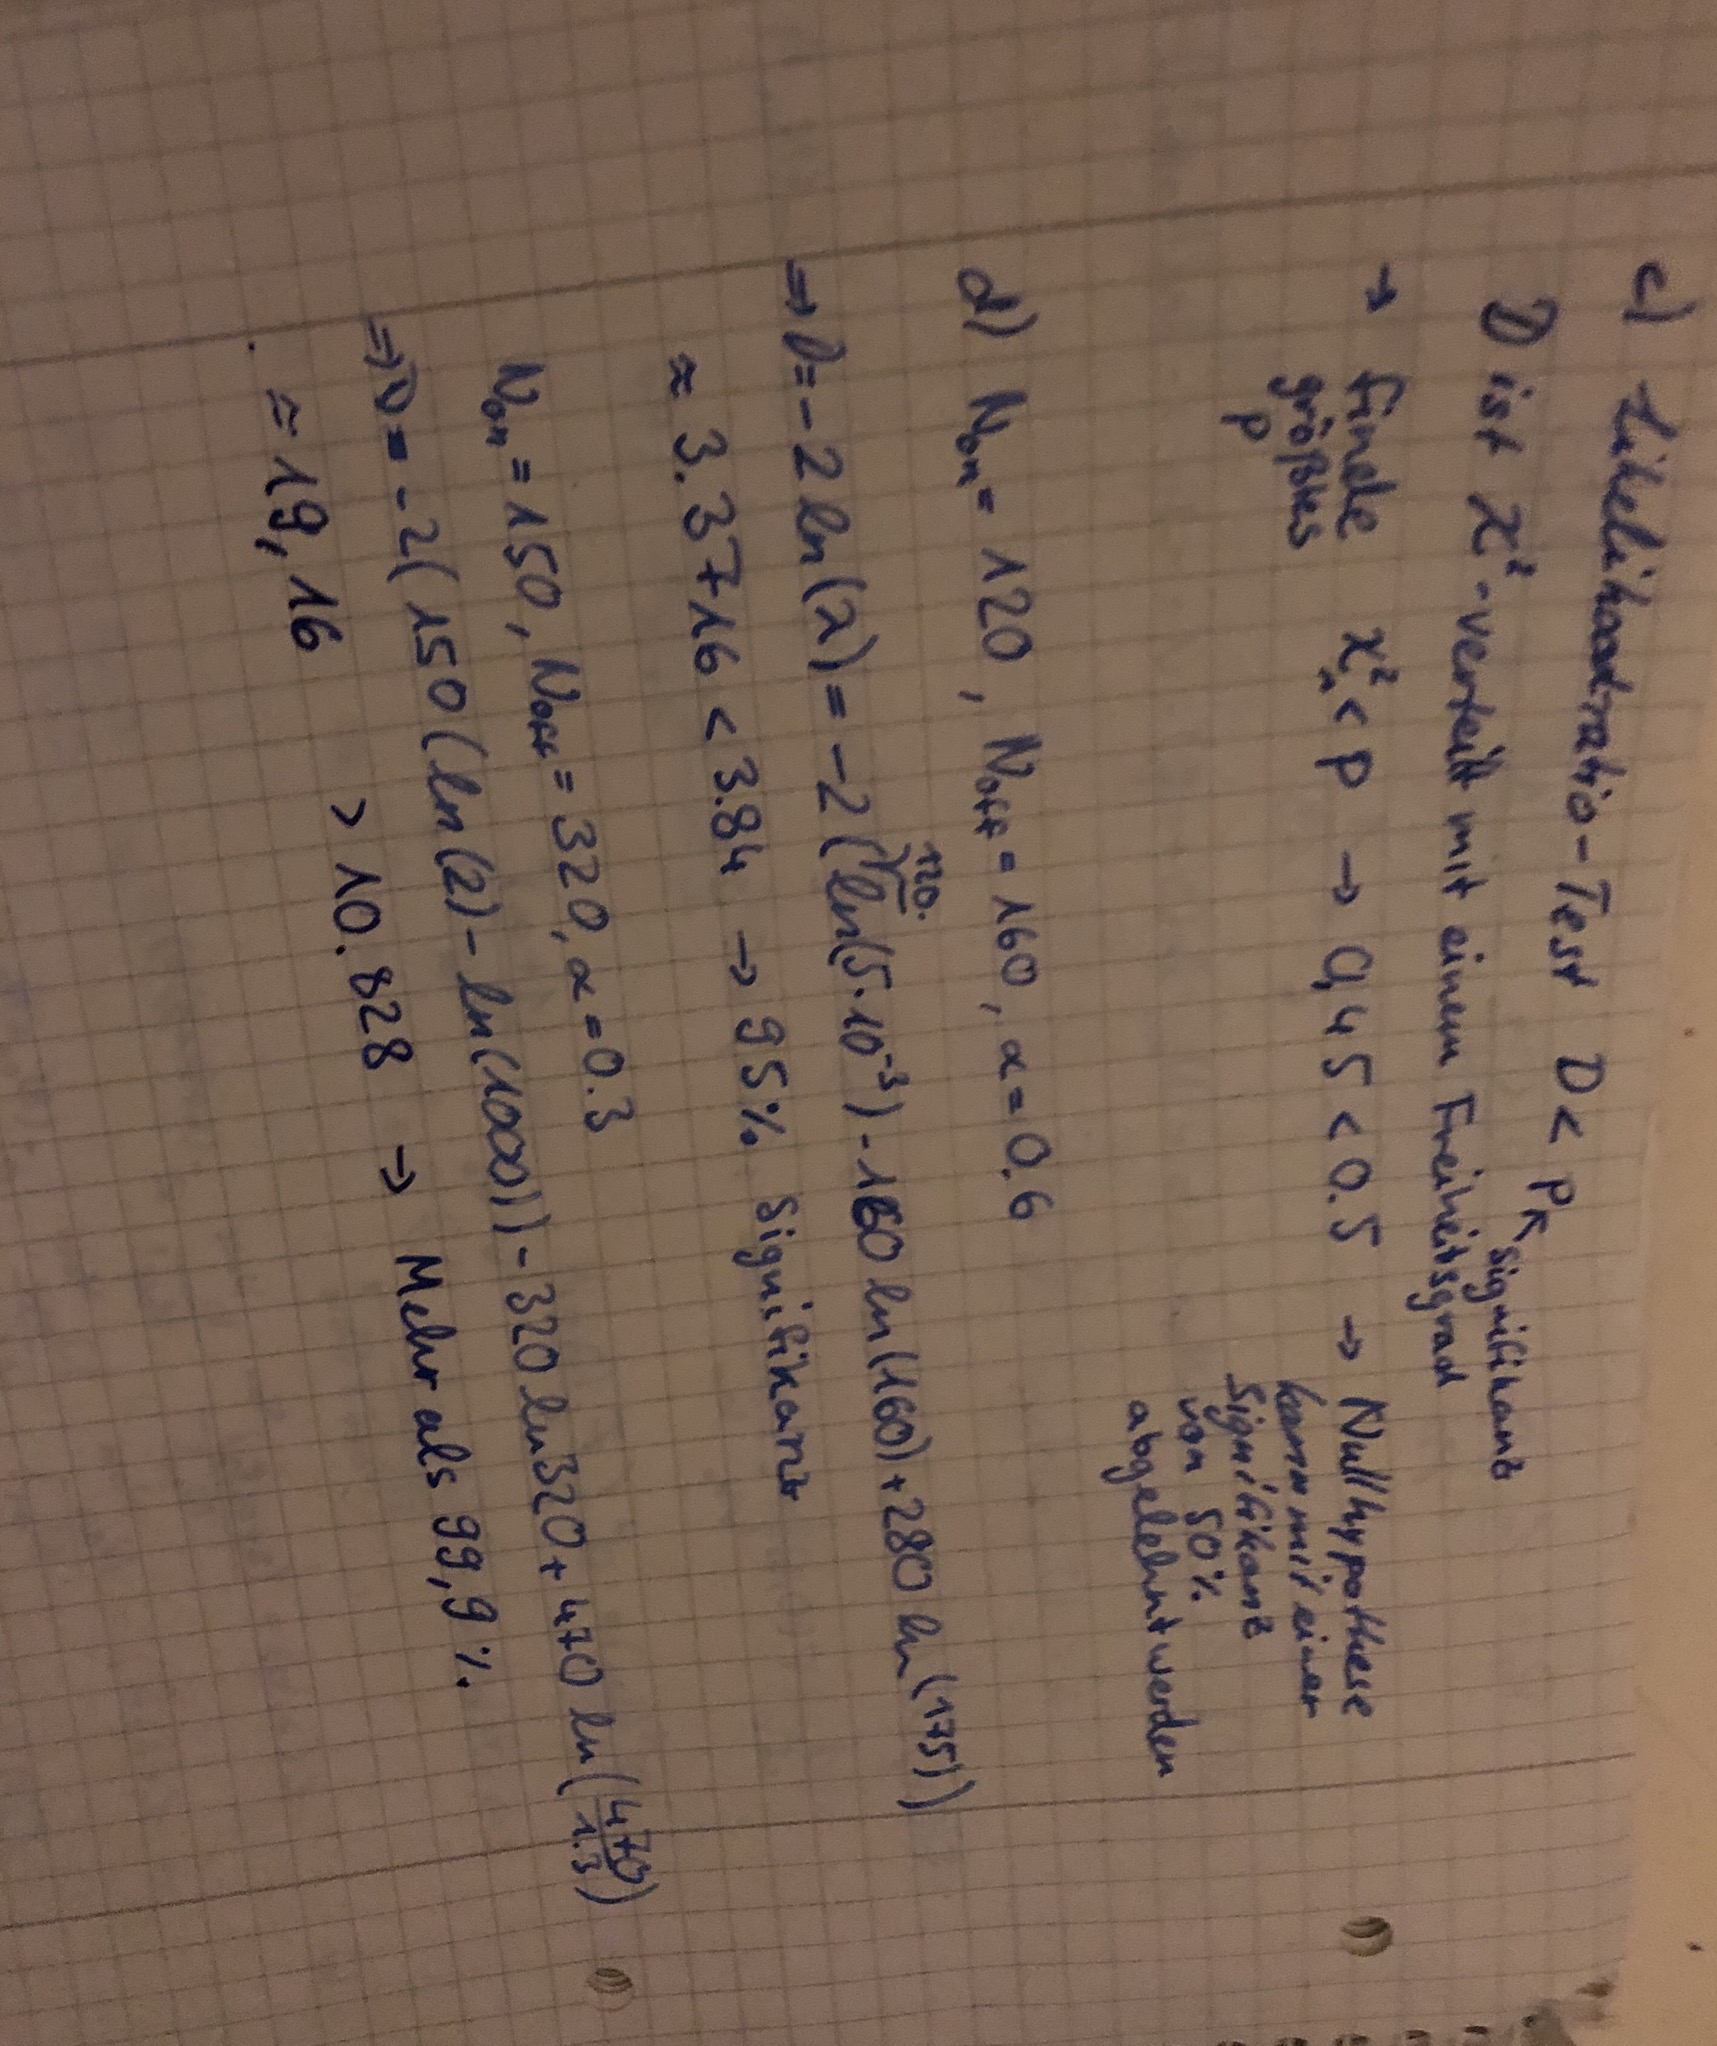 c) Likelihoodratio-Test D < p ↖ signifikanz
D ist χ²-verteilt mit einem Freiheitsgrad
→ finde größtes p χ²₁ < p → 0,45 < 0.5 → Nullhypothese
kann mit einer
Signifikanz
von 50%
abgelehnt werden
d) Non = 120, Noff = 160, α = 0.6
⇒ D = -2 ln(λ) = -2 (120·ln(5·10⁻³) - 160 ln(160) + 280 ln(175))
≈ 3.3716 < 3.84 → 95% Signifikanz
Non = 150, Noff = 320, α = 0.3
⇒ D = -2(150(ln(2) - ln(1000)) - 320 ln 320 + 470 ln(470/1.3)
≈ 19,16 > 10.828 → Mehr als 99,9%